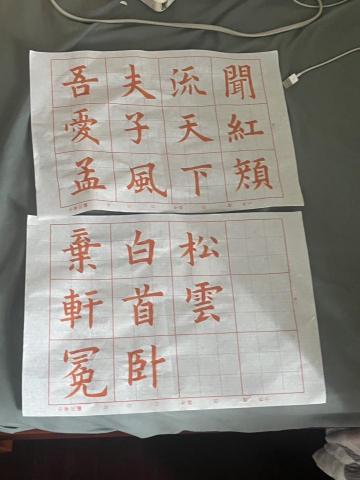 吾愛孟
夫子風
流天下
聞紅
棄軒冕
白首卧
松雲